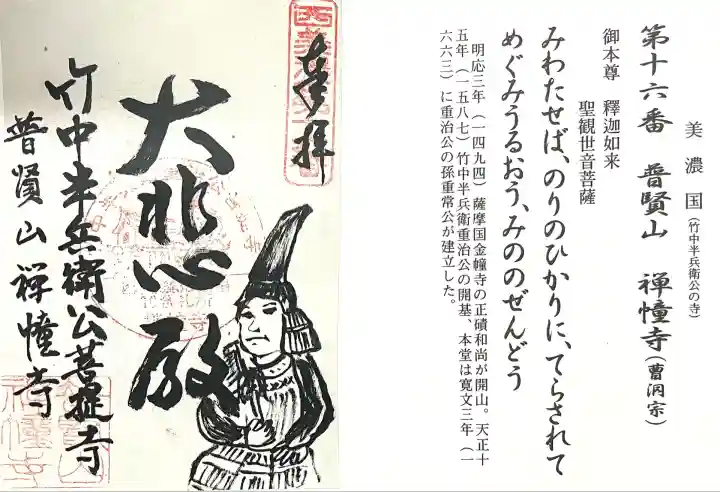 奉拝
大悲殿
竹中半兵衛公菩提寺
普賢山禅幢寺
美濃国(竹中半兵衛公の寺)
第十六番 普賢山 禅幢寺(曹洞宗)
御本尊 釋迦如来
聖観世音菩薩
みわたせば、のりのひかりに、てらされて
めぐみうるおう、みののぜんどう
明応三年(一四九四)薩摩国金幢寺の正磧和尚が開山。天正十
五年(一五八七)竹中半兵衛重治公の開基、本堂は寛文三年(一
六六三)に重治公の孫重常公が建立した。